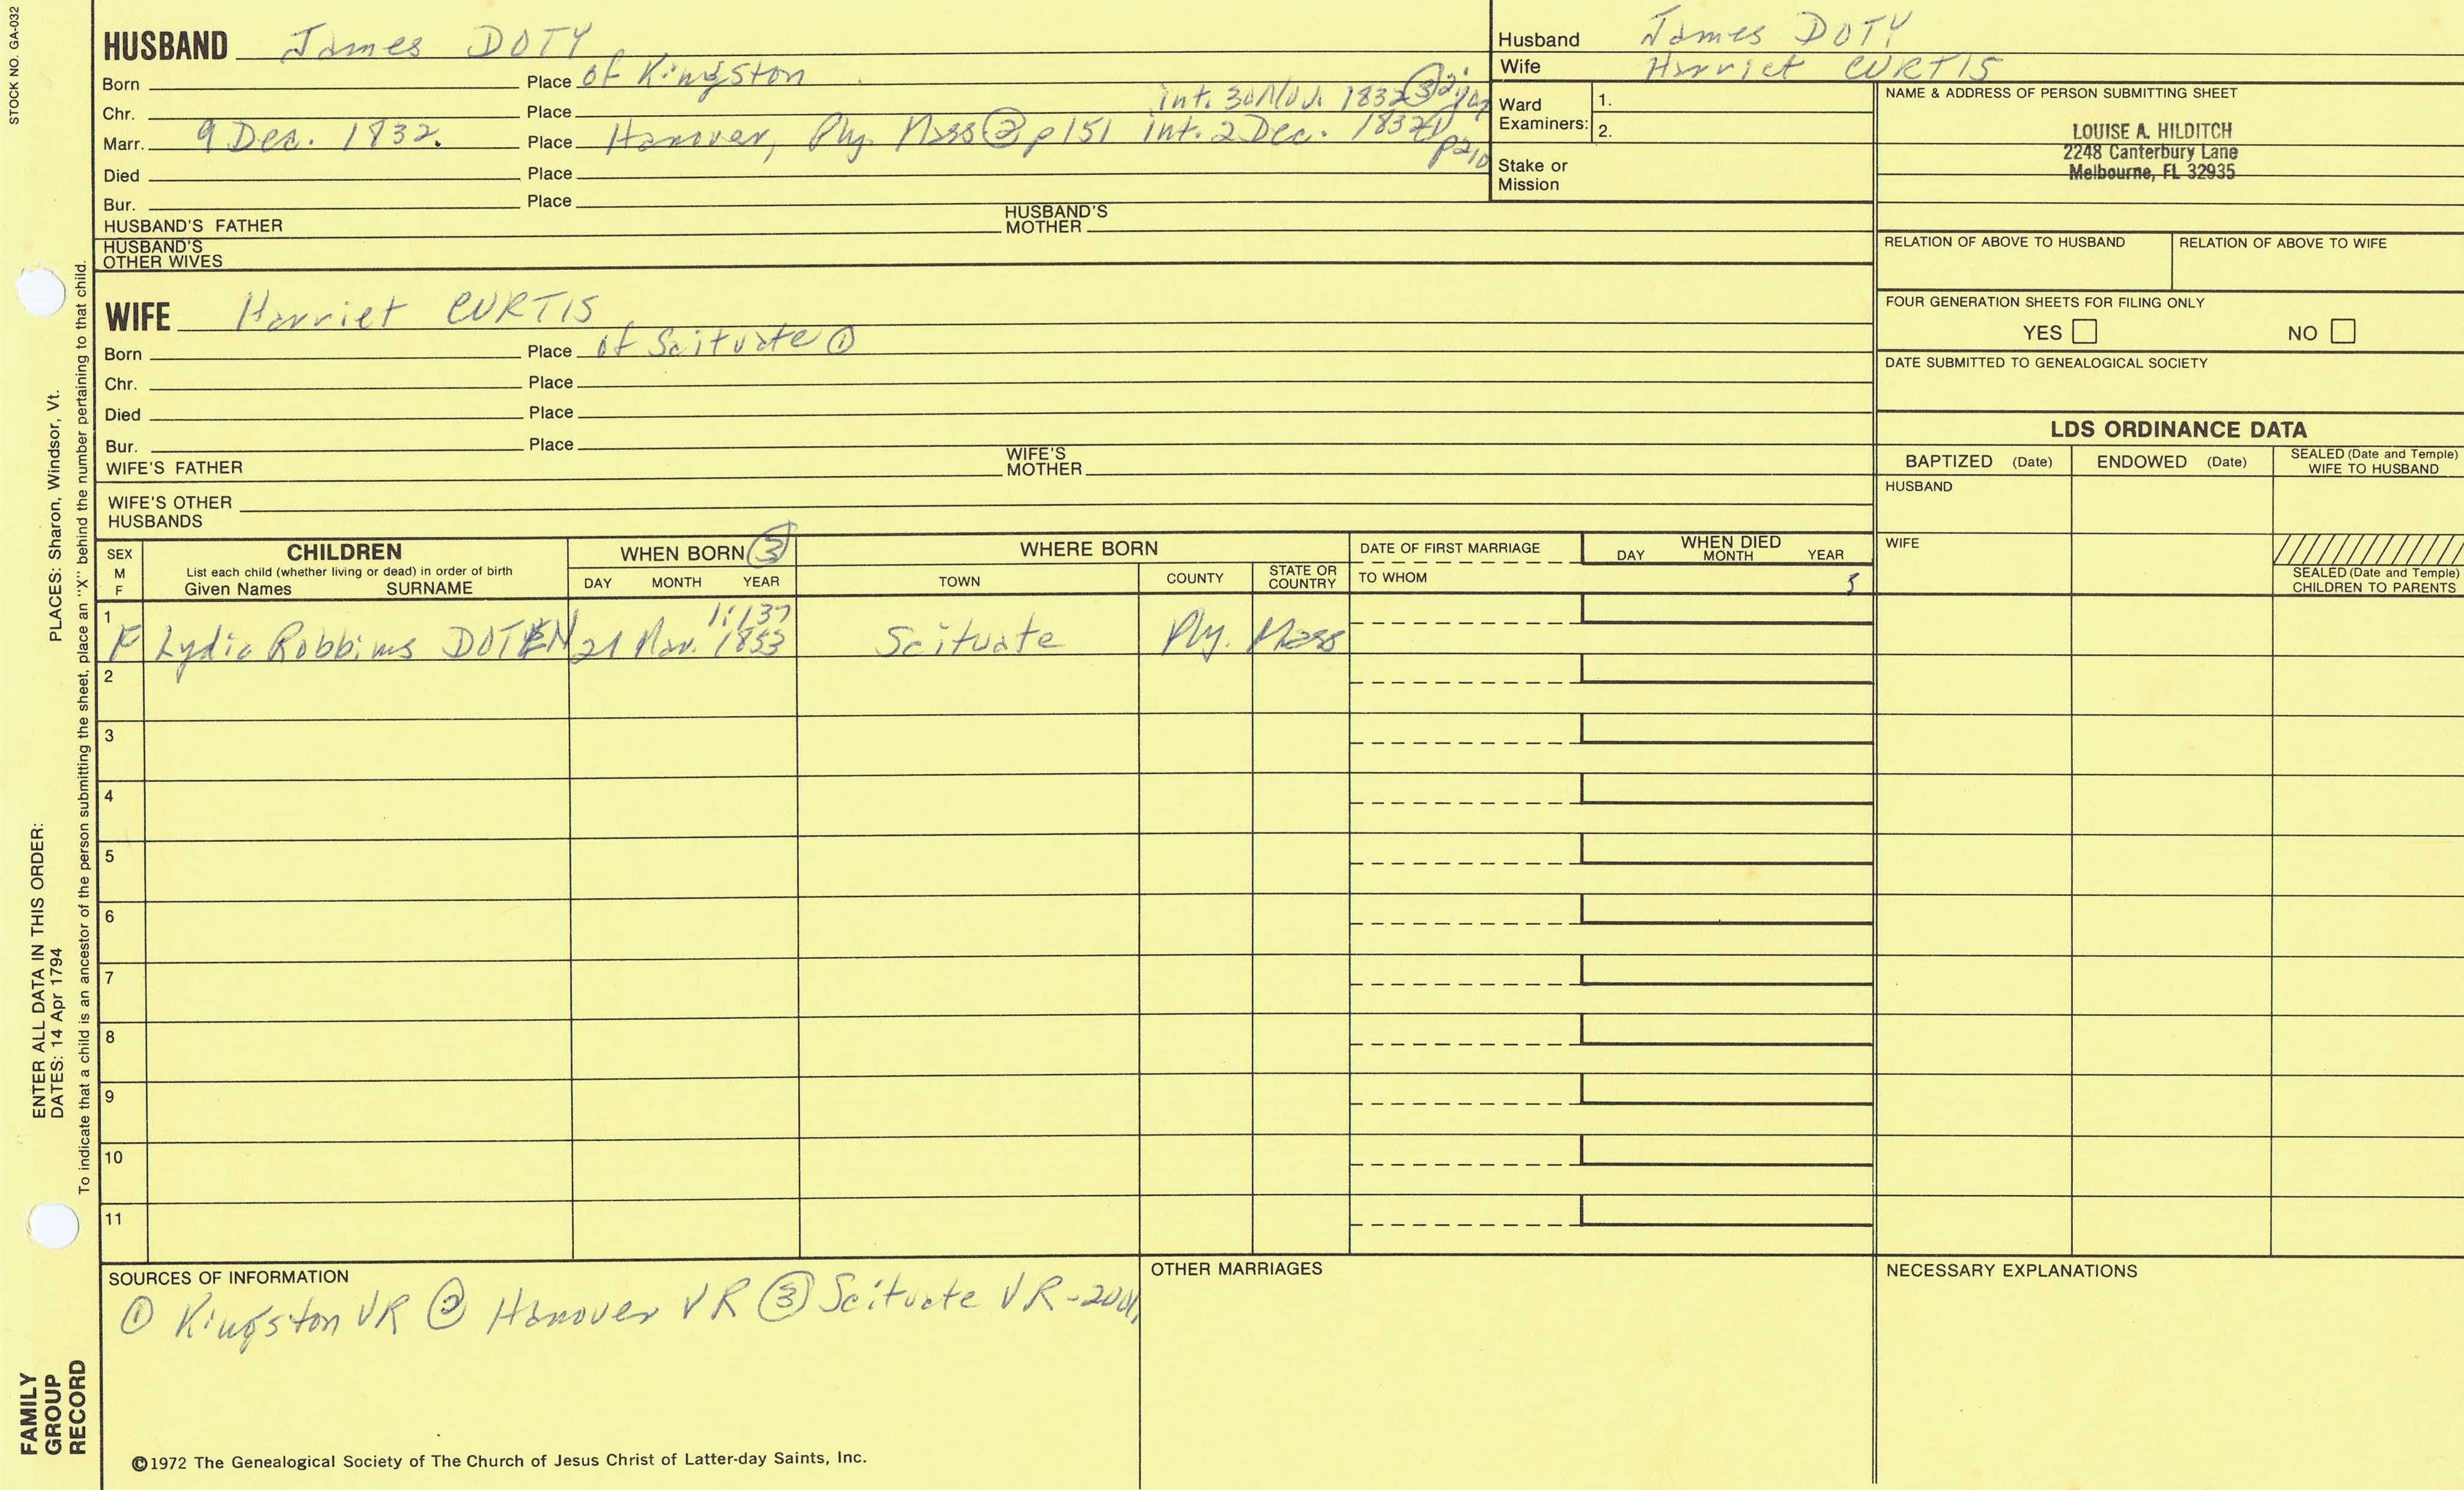 STOCK NO. GA-032
HUSBAND James DOTY
Born Place of Kingston
Chr. Place int. 30 Nov. 1832 ③ 2:
Marr. 9 Dec. 1832. Place Hanover, Ply. Mass ② p151 int. 2 Dec. 1832 ①
p210
Died Place
Bur. Place
HUSBAND'S FATHER HUSBAND'S MOTHER
HUSBAND'S OTHER WIVES
Husband James DOTY
Wife Harriet CURTIS
Ward Examiners: 1.
2.
Stake or Mission
NAME & ADDRESS OF PERSON SUBMITTING SHEET
LOUISE A. HILDITCH
2248 Canterbury Lane
Melbourne, FL 32935
RELATION OF ABOVE TO HUSBAND RELATION OF ABOVE TO WIFE
FOUR GENERATION SHEETS FOR FILING ONLY
YES NO
DATE SUBMITTED TO GENEALOGICAL SOCIETY
WIFE Harriet CURTIS
Born Place of Scituate ①
Chr. Place
Died Place
Bur. Place
WIFE'S FATHER WIFE'S MOTHER
WIFE'S OTHER HUSBANDS
LDS ORDINANCE DATA
BAPTIZED (Date) ENDOWED (Date) SEALED (Date and Temple) WIFE TO HUSBAND
HUSBAND
WIFE
SEALED (Date and Temple) CHILDREN TO PARENTS
SEX M F
CHILDREN
List each child (whether living or dead) in order of birth
Given Names SURNAME
WHEN BORN ③
DAY MONTH YEAR
WHERE BORN
TOWN COUNTY STATE OR COUNTRY
DATE OF FIRST MARRIAGE
TO WHOM
WHEN DIED
DAY MONTH YEAR
1:137
1 F Lydia Robbins DOTEN 21 Mar. 1853 Scituate Ply. Mass
2
3
4
5
6
7
8
9
10
11
SOURCES OF INFORMATION
① Kingston VR ② Hanover VR ③ Scituate VR-
OTHER MARRIAGES
NECESSARY EXPLANATIONS
©1972 The Genealogical Society of The Church of Jesus Christ of Latter-day Saints, Inc.
FAMILY GROUP RECORD
ENTER ALL DATA IN THIS ORDER:
DATES: 14 Apr 1794
PLACES: Sharon, Windsor, Vt.
To indicate that a child is an ancestor of the person submitting the sheet, place an "X" behind the number pertaining to that child.